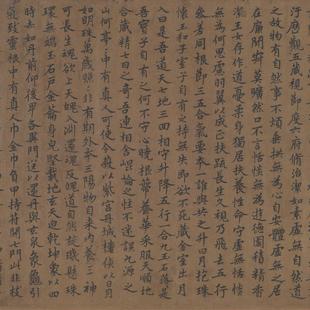 歷觀五藏視節度六府脩治潔如素虛無自然道
之故物有自然事不煩垂拱無為心自安體虛無之居
在廉間寂莫曠然口不言恬惔無為遊德園積精香
潔玉女存作道憂柔身獨居扶養性命守虛無恬惔
無為何思慮羽翼以成正扶疏長生久視乃飛去五行
參差同根節三五合氣要本一誰與共之升日月抱珠
懷玉和子室子自有之持無失即欲不死藏金室出月
入日是吾道天七地三回相守升降五行一合九玉石落落是
吾寶子自有之何不守心曉根蒂養華采服天順地
合藏精七日之奇吾連相合崐崘之性不迷誤九源之
山何亭亭中有真人可使令蔽以紫宮丹城樓俠以日月
如明珠萬歲照照非有期外本三陽物自來內養三神
可長生魂欲上天魄入淵還魂反魄道自然旋璣懸珠
環無端玉石戶金籥身完堅載地玄天迴乾坤象以四
時赤如丹前仰後卑各異門送以還丹與玄泉象龜引
氣致靈根中有真人巾金巾負甲持符開七門此非枝